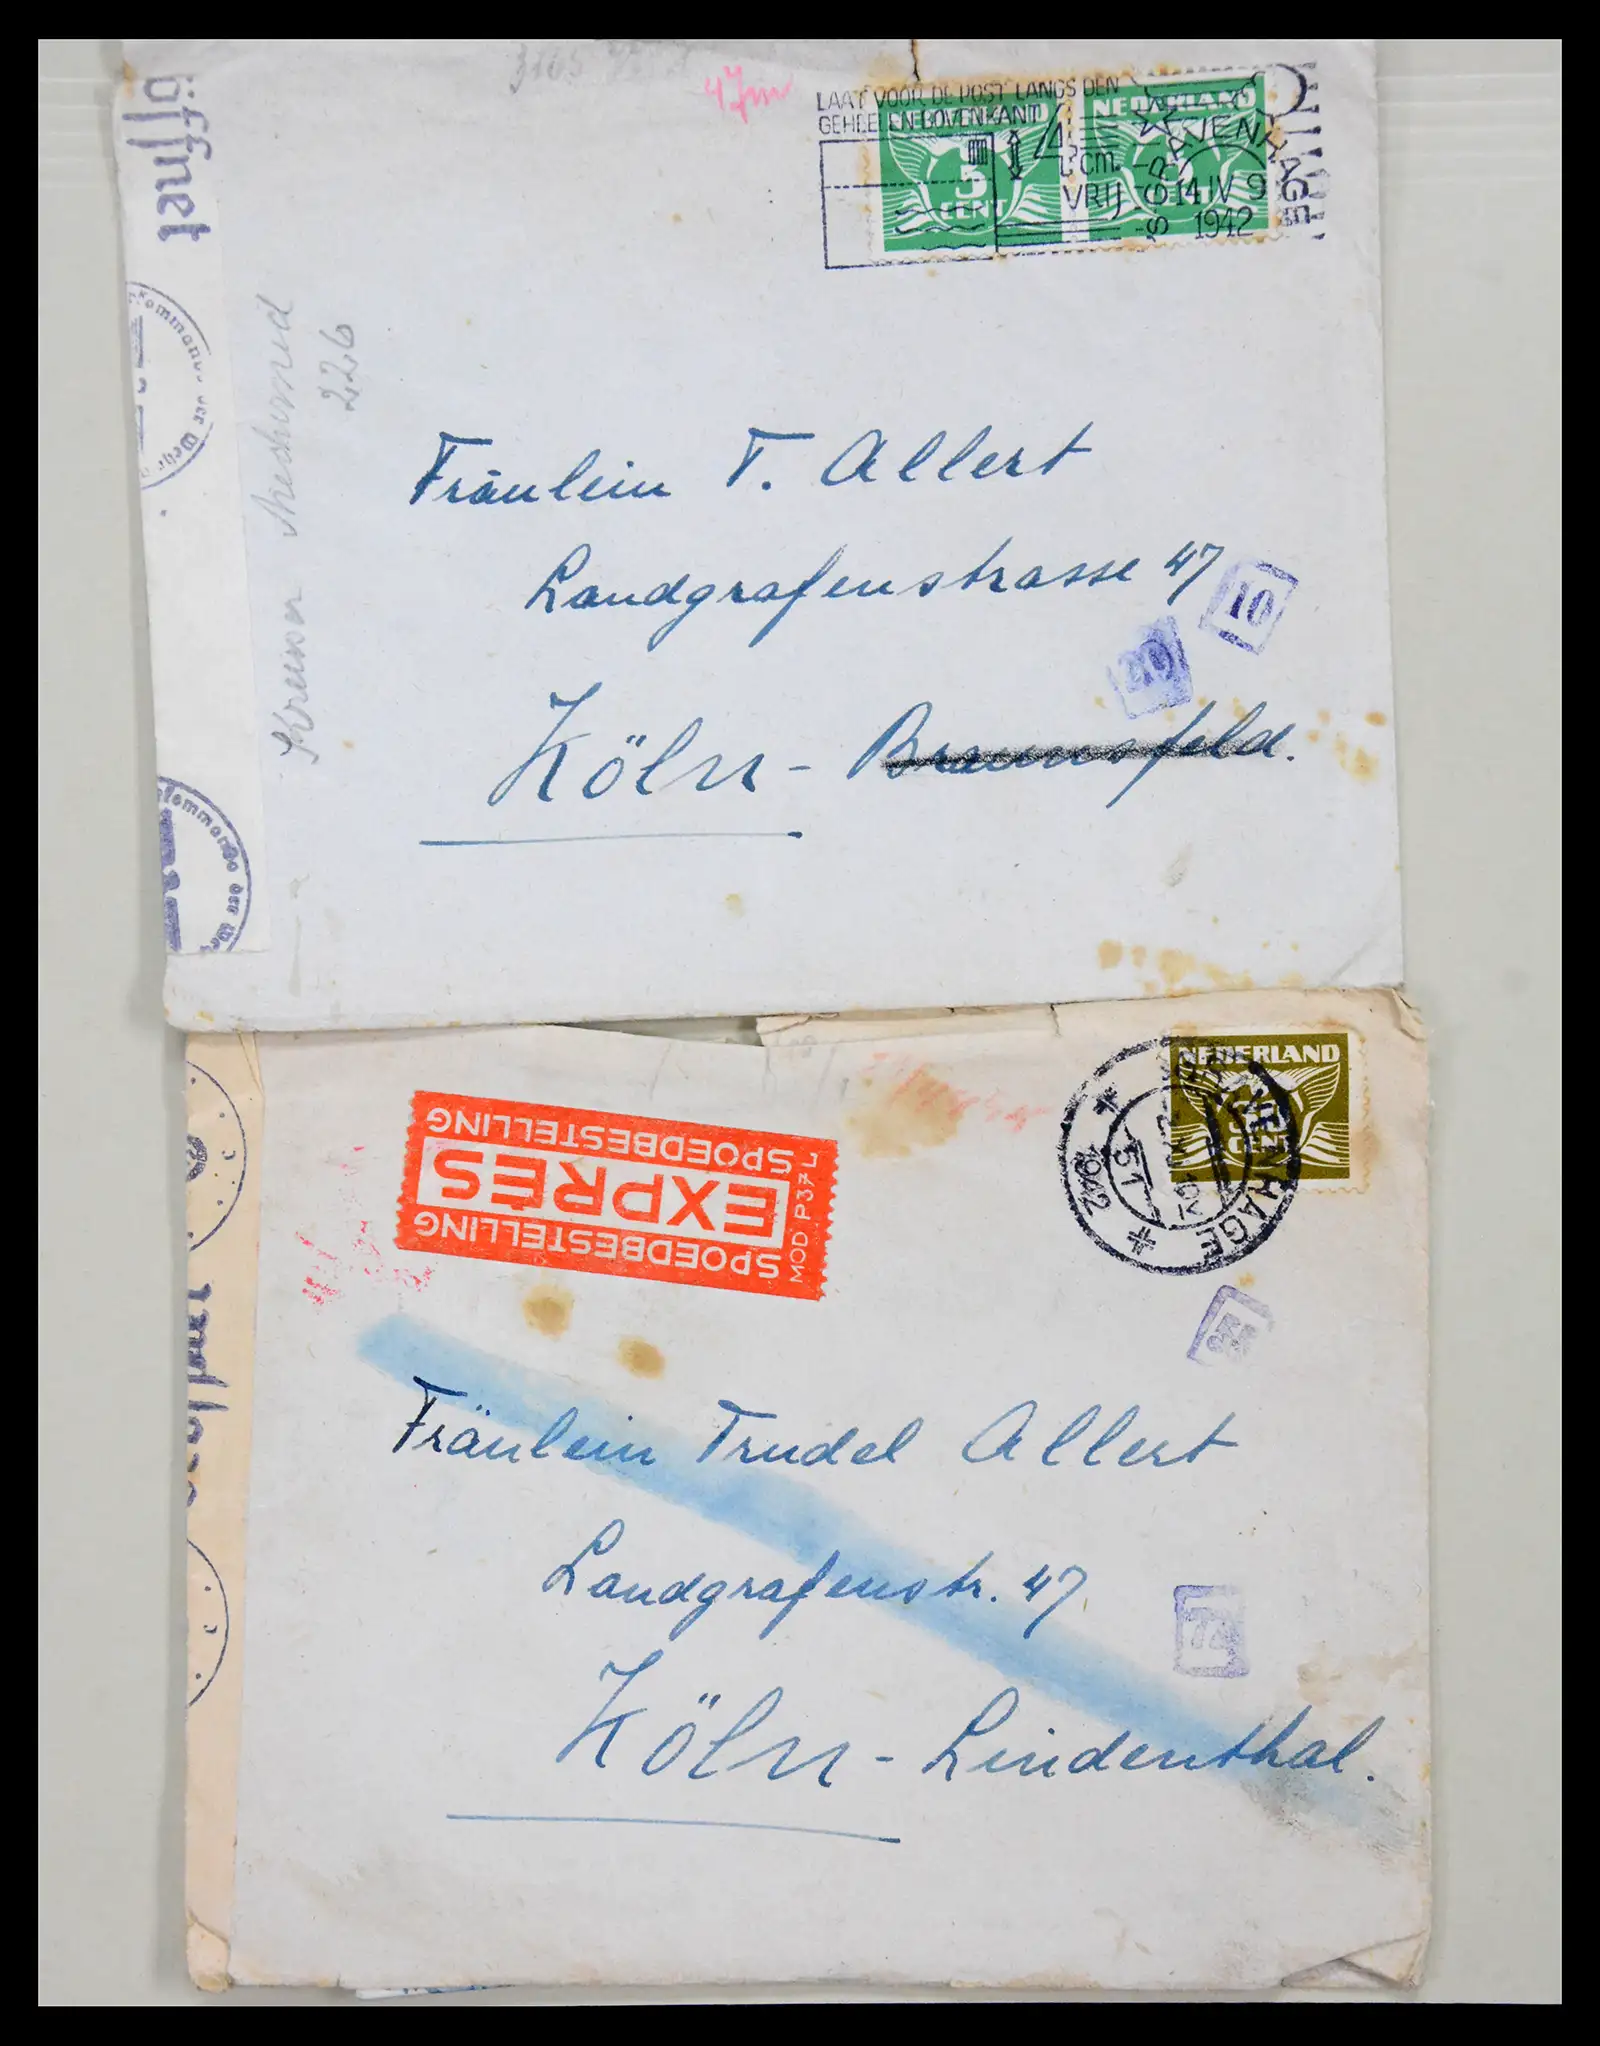 3165
47m
LAAT VOOR DE POST LANGS DEN
GEHEELEN BOVENKANT 4
cm.
VRIJ
NEDERLAND
3
CENT
NEDERLAND
'S GRAVENHAGE
14 IV 9
1942
öffnet
kommando der Weh
226
Fräulein T. Allert
Landgrafenstrasse 47
10
20
Köln - Braunsfeld.
kommando der We
SPOEDBESTELLING
EXPRES
SPOEDBESTELLING
MOD P37
NEDERLAND
CENT
GRAVENHAGE
1942
51
Fräulein Trudel Allert
Landgrafenstr. 47
Köln - Lindenthal.